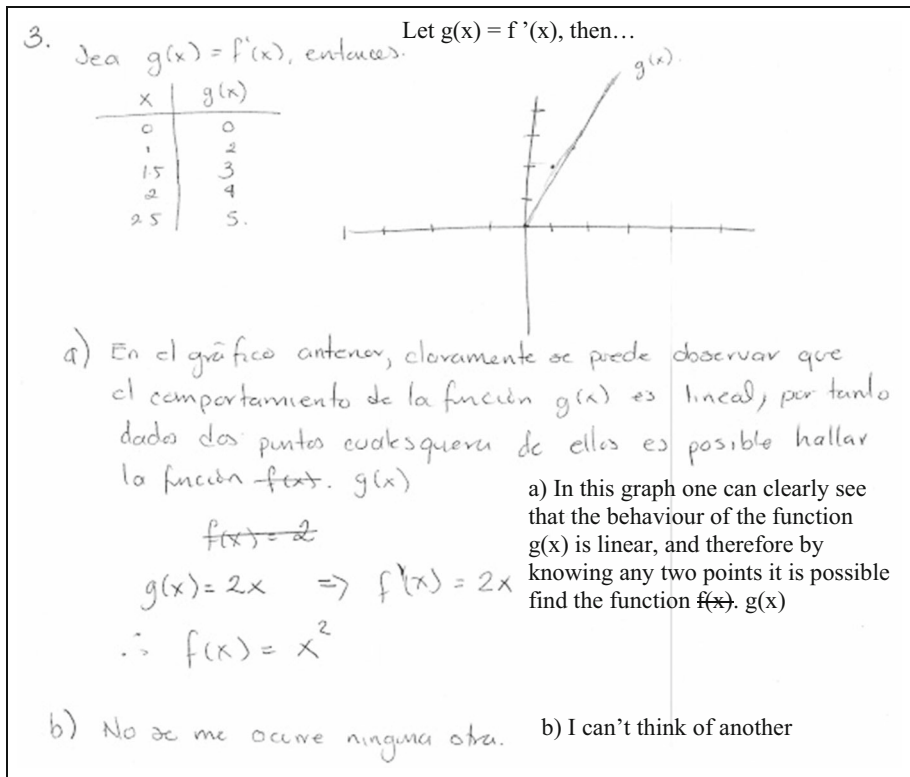 3.
Let g(x) = f ’(x), then…
Sea g(x) = f'(x), entonces.
g(x).
x | g(x)
0 | 0
1 | 2
1.5 | 3
2 | 4
2.5 | 5.
a) En el gráfico anterior, claramente se puede observar que
el comportamiento de la función g(x) es lineal, por tanto
dados dos puntos cualesquera de ellos es posible hallar
la función f(x). g(x)
f(x) = 2
g(x) = 2x => f'(x) = 2x
∴ f(x) = x²
a) In this graph one can clearly see
that the behaviour of the function
g(x) is linear, and therefore by
knowing any two points it is possible
find the function f(x). g(x)
b) No se me ocurre ninguna otra.
b) I can’t think of another